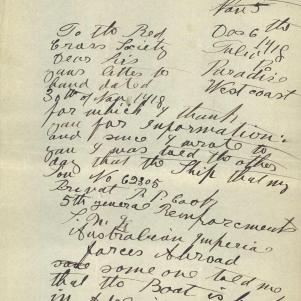 Dec 6th
1918
To the Red
Cross Society
Paradise
Dear Sir
West coast
yours letter to
hand dated
30th of Nov 1918,
for which I thank
you for Information:
and since I wrote to
you I was told the other
day that the Ship that my
Son No 62305
Privat R P Cook
5th general Reinforcments
Australian Imperial
forces Abroad
some one told me
that the Boat is